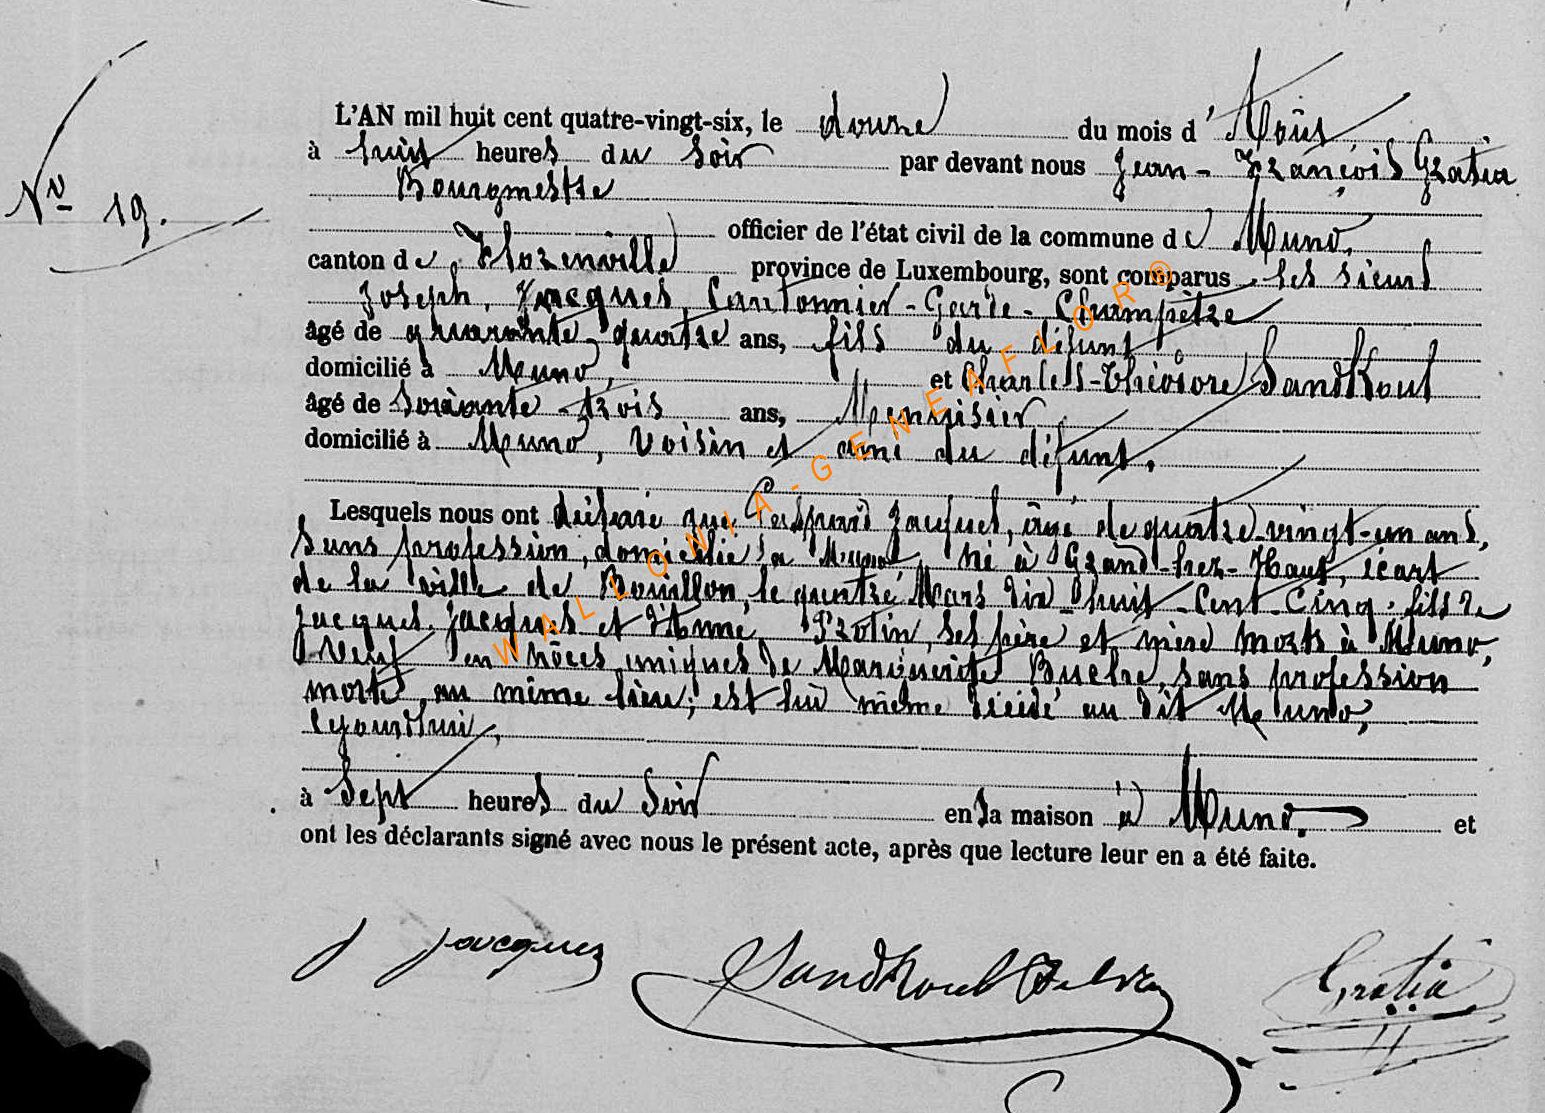 L'AN mil huit cent quatre-vingt-six, le douze du mois d'Août
à huit heures du Soir par devant nous Jean-François Gratia
Nº 19.
Bourgmestre
officier de l'état civil de la commune de Muno,
canton de Florenville province de Luxembourg, sont comparus les sieurs
Joseph Jacques Cantonnier-Garde-Champêtre
âgé de quarante-quatre ans, fils du défunt
domicilié à Muno, et Charles-Théodore Sandkoul
âgé de Soixante-trois ans, Menuisier
domicilié à Muno, voisin et ami du défunt.
Lesquels nous ont déclaré que Jacques, âgé de quatre-vingt-un ans,
Sans profession, domicilié à Muno, né à Grand-hez-Haut, écart
de la ville de Bouillon, le quatre Mars dix-huit-Cent-Cinq, fils de
Jacques Jacques et d'Anne Protin, ses père et mère morts à Muno,
Veuf en nôces uniques de Marguerite, sans profession
morte au même lieu; est lui même décédé au dit Muno,
à Sept heures du Soir en sa maison à Muno. et
ont les déclarants signé avec nous le présent acte, après que lecture leur en a été faite.
J Jacques Sandkoul Gratia
WALLONIA-GENEAFLOR®